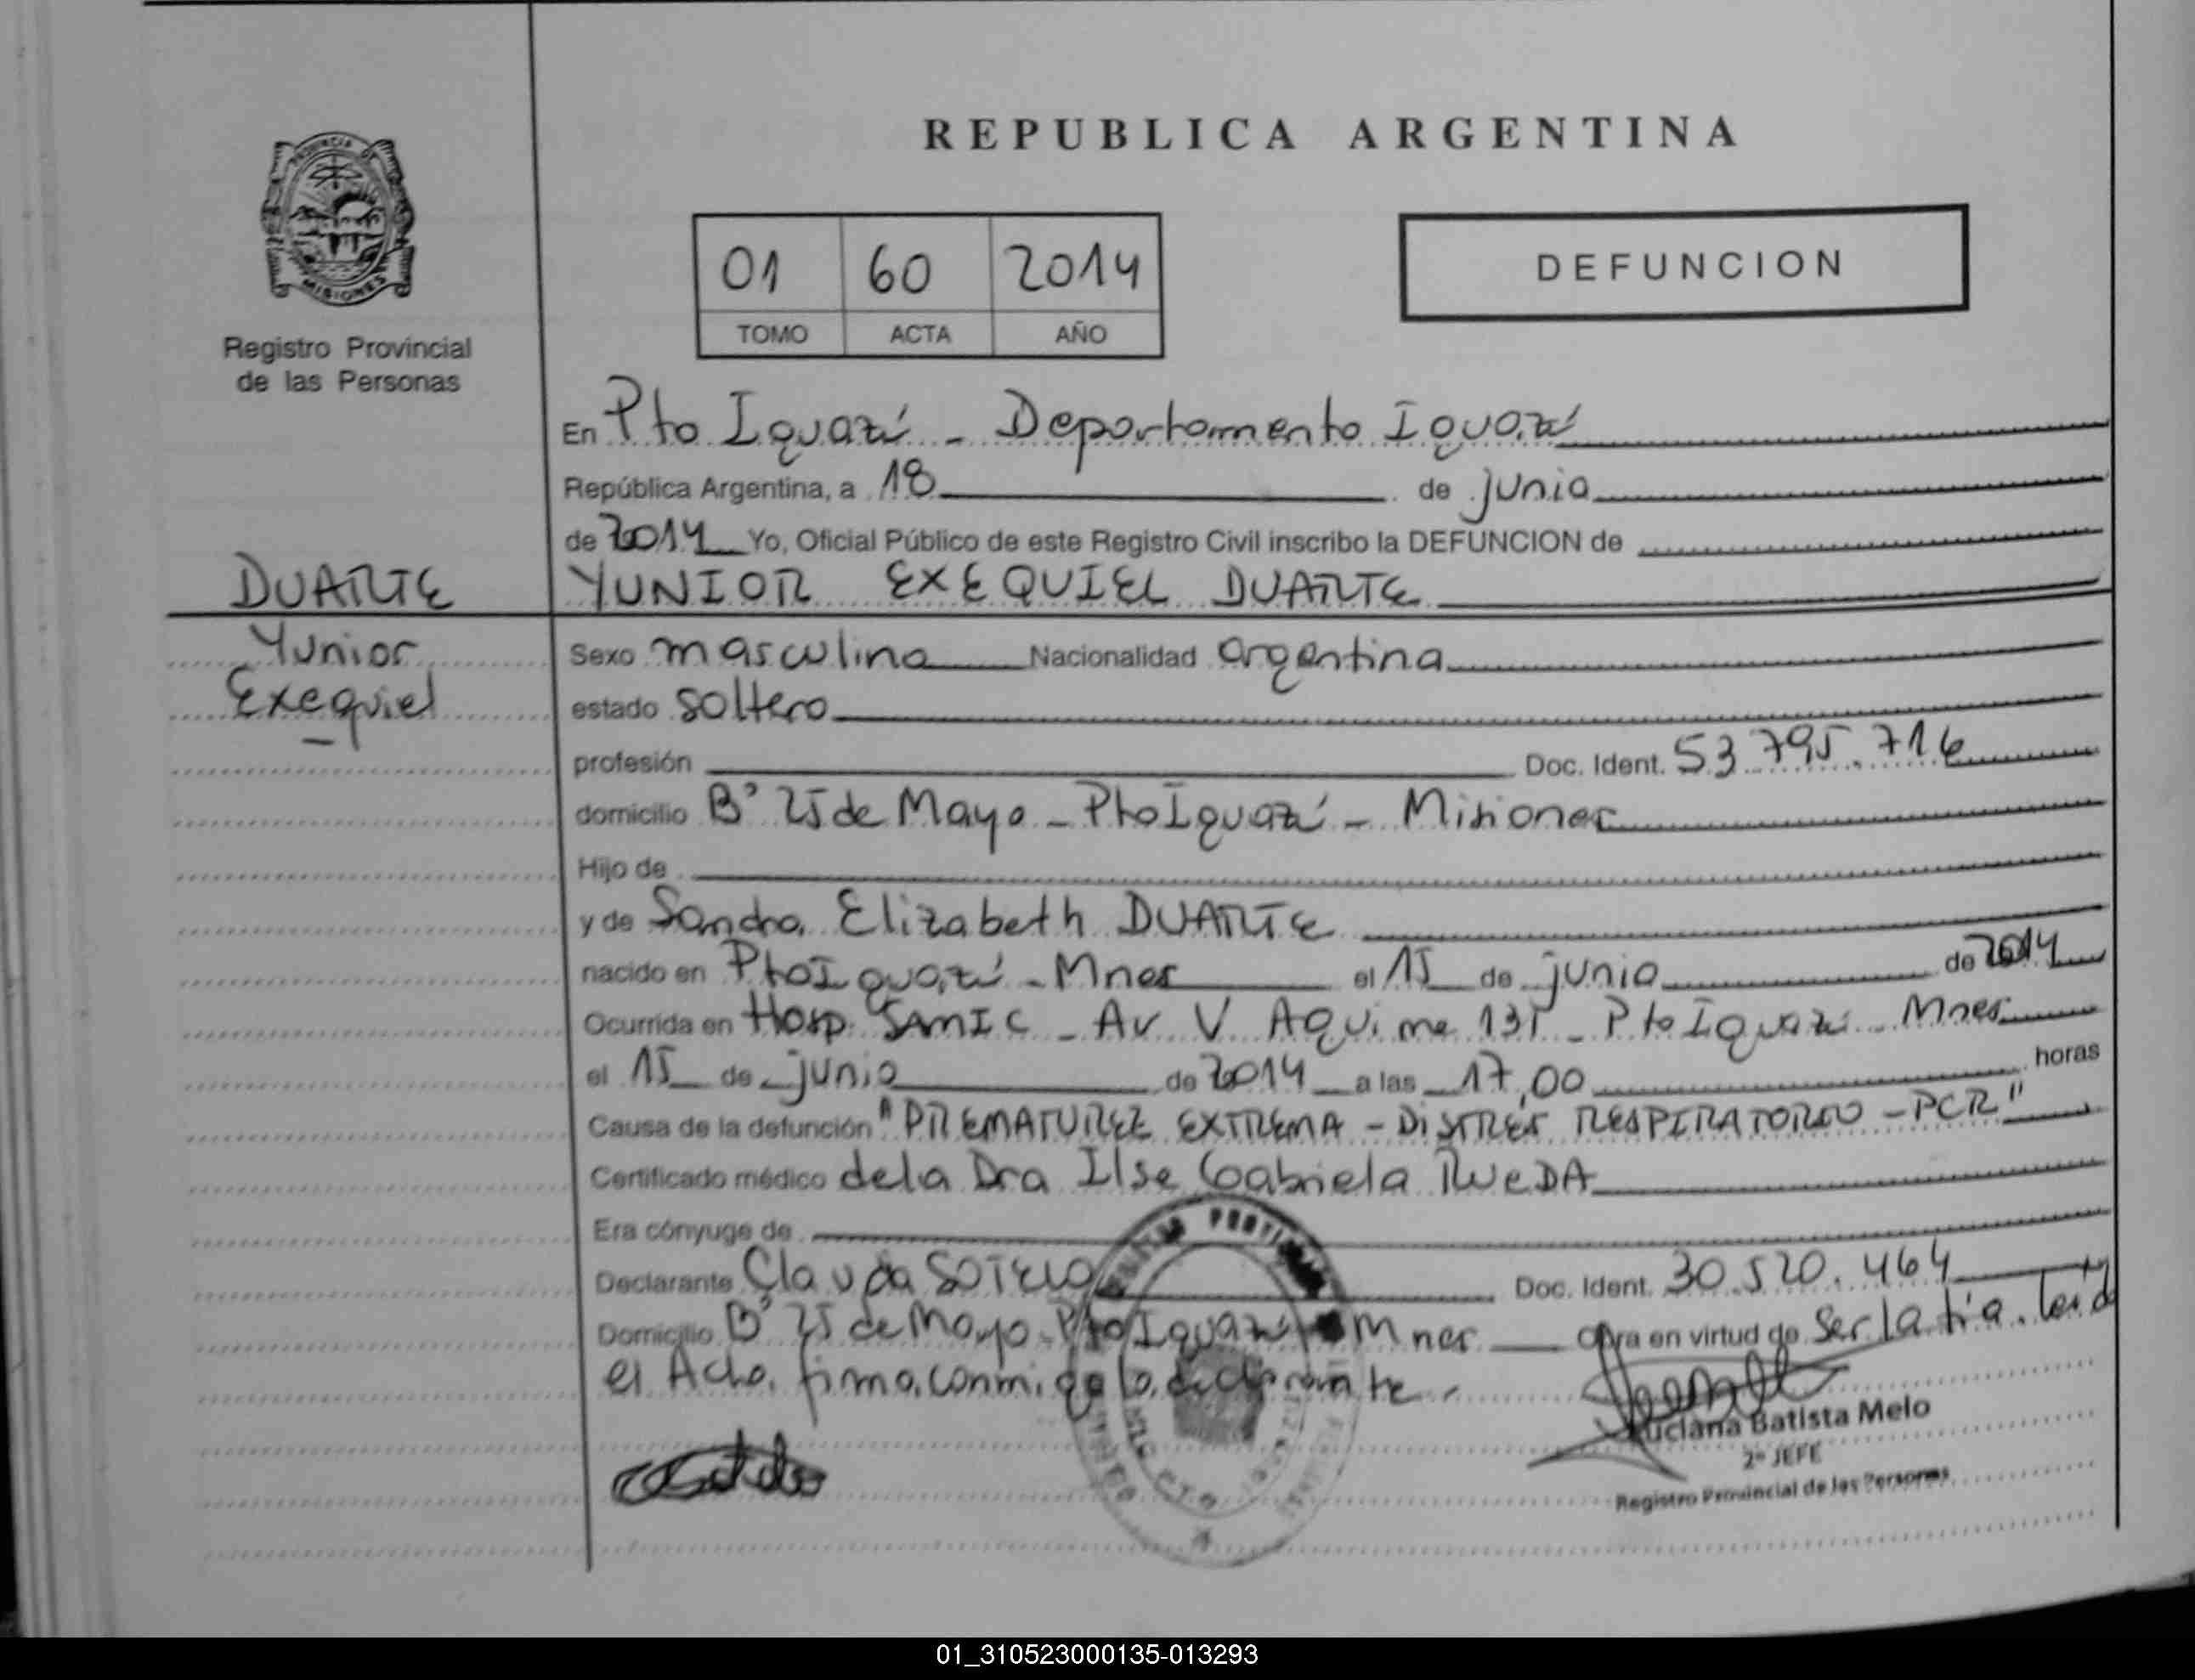 REPUBLICA ARGENTINA
PROVINCIA D
MISIONES
Registro Provincial
de las Personas
01 60 2014
TOMO ACTA AÑO
DEFUNCION
En Pto Iguazú - Departamento Iguazú
República Argentina, a 18 de junio
de 2014 Yo, Oficial Público de este Registro Civil inscribo la DEFUNCION de
DUARTE
YUNIOR EXEQUIEL DUARTE
Yunior
Exequiel
Sexo masculino Nacionalidad argentina
estado soltero
profesión Doc. Ident. 53.795.716
domicilio B° 25 de Mayo - Pto Iguazú - Misiones
Hijo de
y de Sandra Elizabeth DUARTE
nacido en Pto Iguazú - Mnes el 15 de junio de 2014
Ocurrida en Hosp. SAMIC - Av V Aquime 131 - Pto Iguazú - Mnes
el 15 de junio de 2014 a las 17,00 horas
Causa de la defunción "PREMATUREZ EXTREMA - DiSTRéS RESPIRATORIO - PCR"
Certificado médico de la Dra Ilse Gabriela RUEDA
Era cónyuge de
Declarante Clauda SOTELO Doc. Ident. 30.520.464
Domicilio B° 25 de Mayo - Pto Iguazú Mnes Obra en virtud de Ser la tía. Leída
el Acta, firma conmigo la declarante.
Luciana Batista Melo
2º JEFE
Registro Provincial de las Personas
01_310523000135-013293